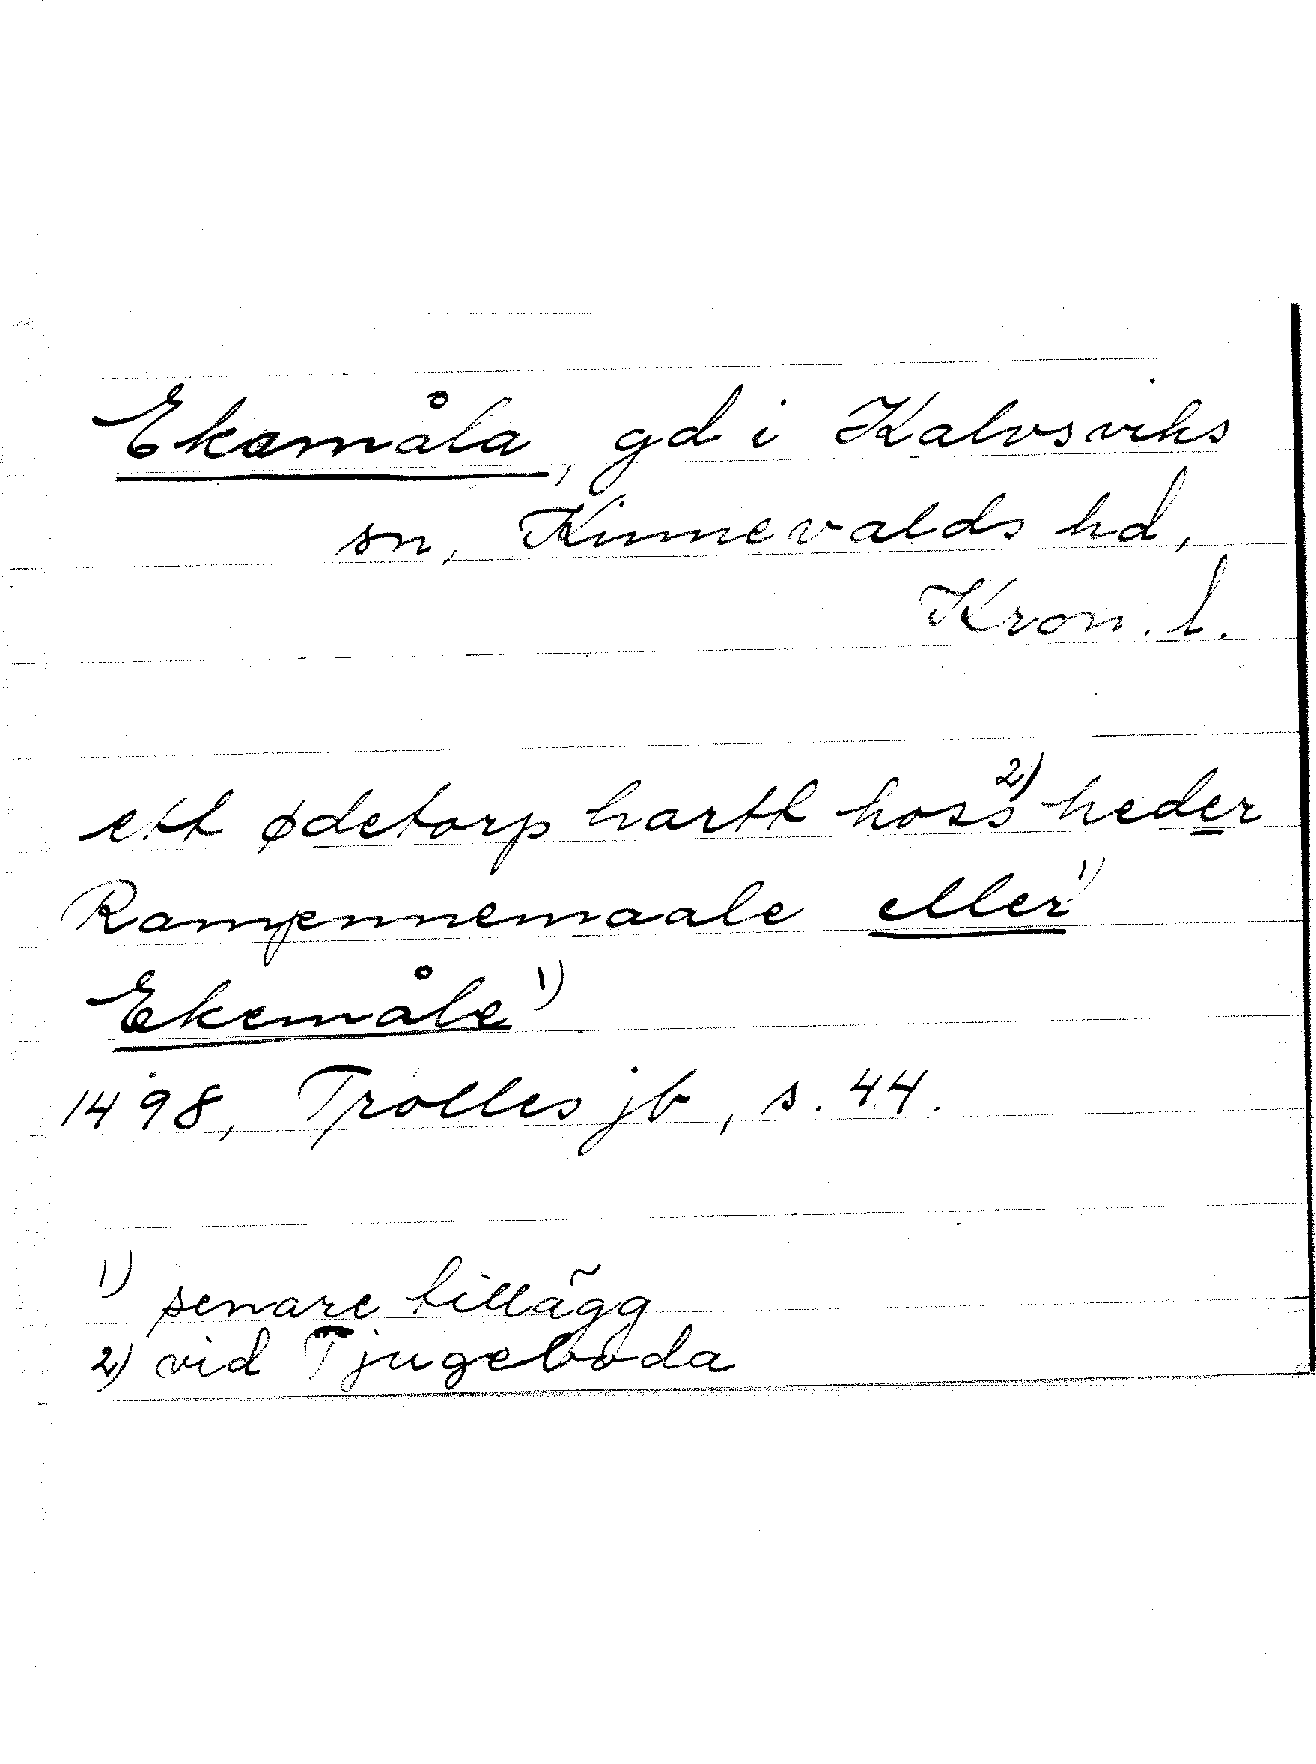 Ekamåla, gd i Kalvsviks
sn, Kinnevalds hd,
Kron. l.
ett ødetorp hartt hoss²⁾ heder
Rampennemaale eller¹⁾
Ekemåle¹⁾
1498, Trolles jb, s. 44.
1) senare tillägg
2) vid Tjugeboda